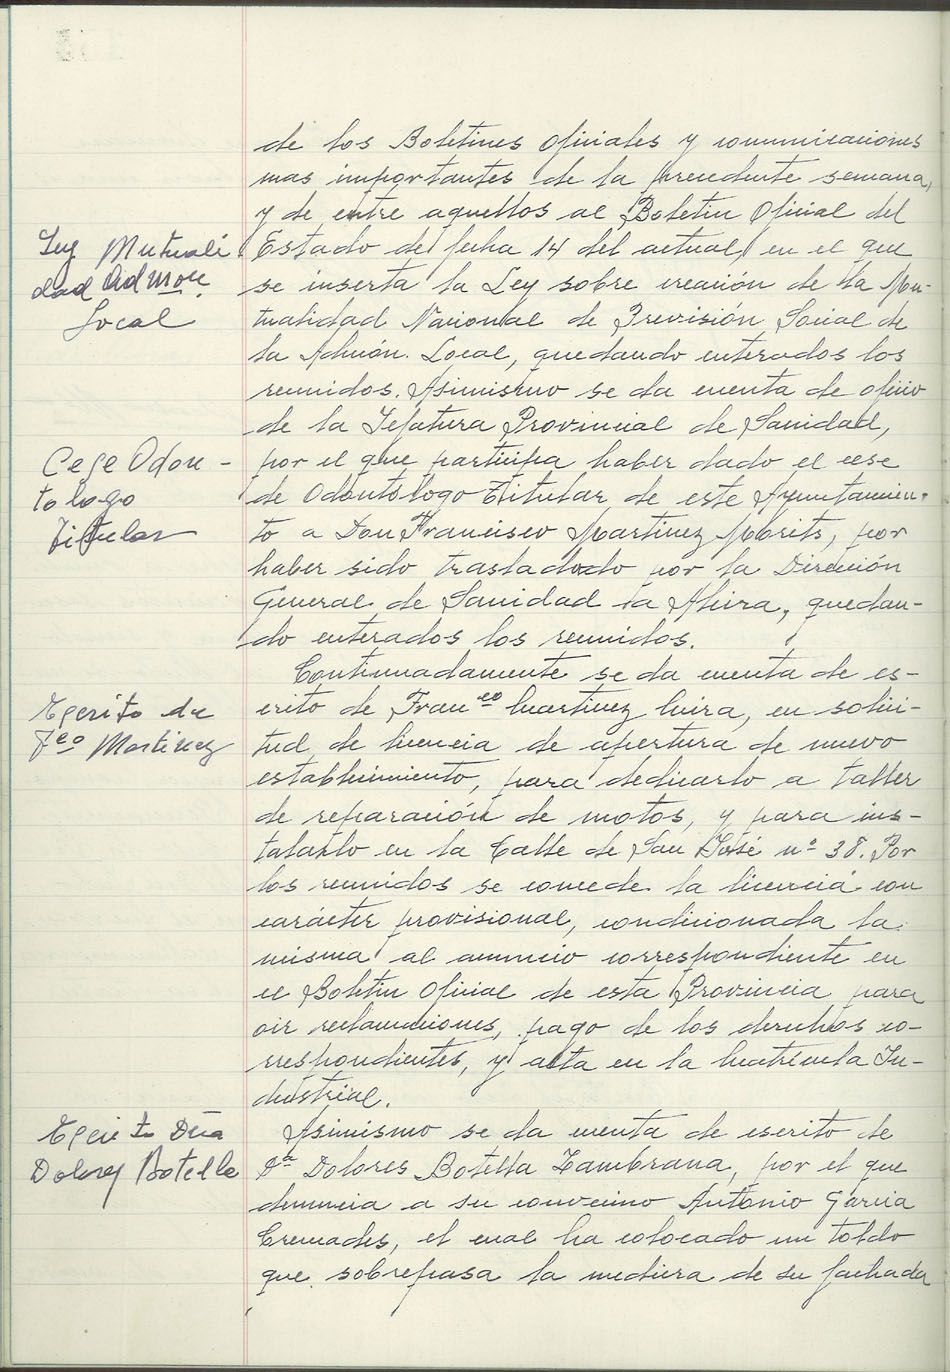 de los Boletines Oficiales y comunicaciones
mas importantes de la precedente semana,
y de entre aquellos al Boletin Oficial del
Ley Mutuali
dad Admon.
Local
Estado de fecha 14 del actual, en el que
se inserta la Ley sobre creación de la Mu-
tualidad Nacional de Previsión Social de
la Admón. Local, quedando enterados los
reunidos. Asimismo se da cuenta de oficio
de la Jefatura Provincial de Sanidad,
Cese Odon-
tologo
Titular
por el que participa haber dado el cese
de Odontólogo Titular de este Ayuntamien-
to a Don Francisco Martinez, por
haber sido trasladado por la Dirección
General de Sanidad a Alcira, quedan-
do enterados los reunidos.
Continuadamente se da cuenta de es-
Escrito de
Fco Martinez
crito de Franco Martinez Mira, en solici-
tud de licencia de apertura de nuevo
establecimiento, para dedicarlo a taller
de reparación de motos, y para ins-
talarlo en la Calle de San José nº 38. Por
los reunidos se concede la licencia con
carácter provisional, condicionada la
misma al anuncio correspondiente en
el Boletin Oficial de esta Provincia para
oir reclamaciones, pago de los derechos co-
rrespondientes, y alta en la Matrícula In-
dustrial.
Escrito Dña
Dolores Botella
Asimismo se da cuenta de escrito de
Dª Dolores Botella Zambrana, por el que
denuncia a su convecino Antonio Garcia
Cremades, el cual ha colocado un toldo
que sobrepasa la medida de su fachada